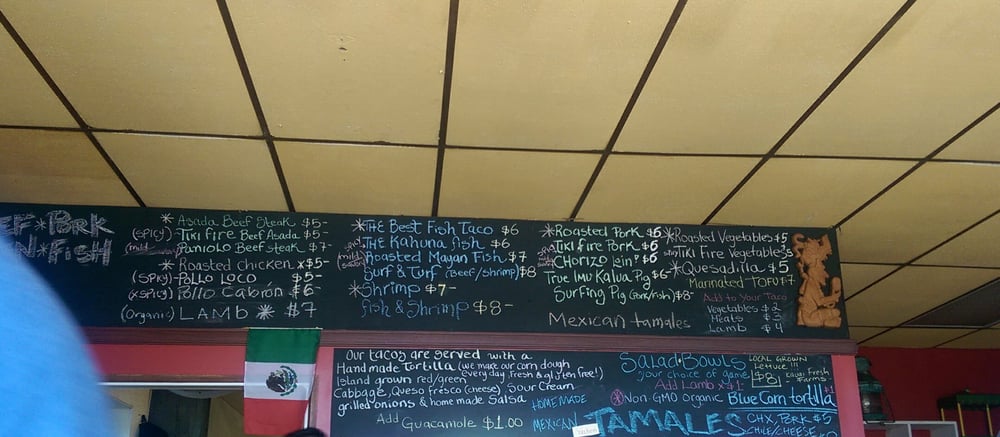 PORK
FISH
* Asada Beef Steak $5-
(SPICY) Tiki fire Beef Asada $5-
(mild) Paniolo Beef steak $7-
* Roasted Chicken * $5-
(SPICY) Pollo Loco $5-
(XSPICY) Pollo Cabrón $6-
(Organic) LAMB * $7
* THE Best Fish Taco $6
THE Kahuna fish $6
Roasted Mayan Fish $7
Surf & Turf (Beef/shrimp) $8
* Shrimp $7-
fish & Shrimp $8-
* Roasted Pork $6
Tiki fire Pork $6
Chorizo $6
True Imu Kalua Pig $6-
Surfing Pig (Pork/fish) $8-
Mexican tamales
* Roasted Vegetables $5
Tiki Fire Vegetables $5
* Quesadilla $5
Marinated TOFU $7
Add to your Taco
Vegetables $2
Meats $3
Lamb $4
Our tacos are served with a
Handmade Tortilla (we make our corn dough
every day fresh & gluten free!)
Island grown red/green
Cabbage, Queso Fresco (cheese) Sour Cream
grilled onions & home made Salsa
Add Guacamole $1.00
HOMEMADE
MEXICAN TAMALES
Salad Bowls
your choice of game
LOCAL GROWN
Lettuce !!!
$8
Fresh
Farms
Add Lamb x $1-
Non-GMO Organic Blue Corn tortilla
CHX, PORK $5
CHILE/CHEESE